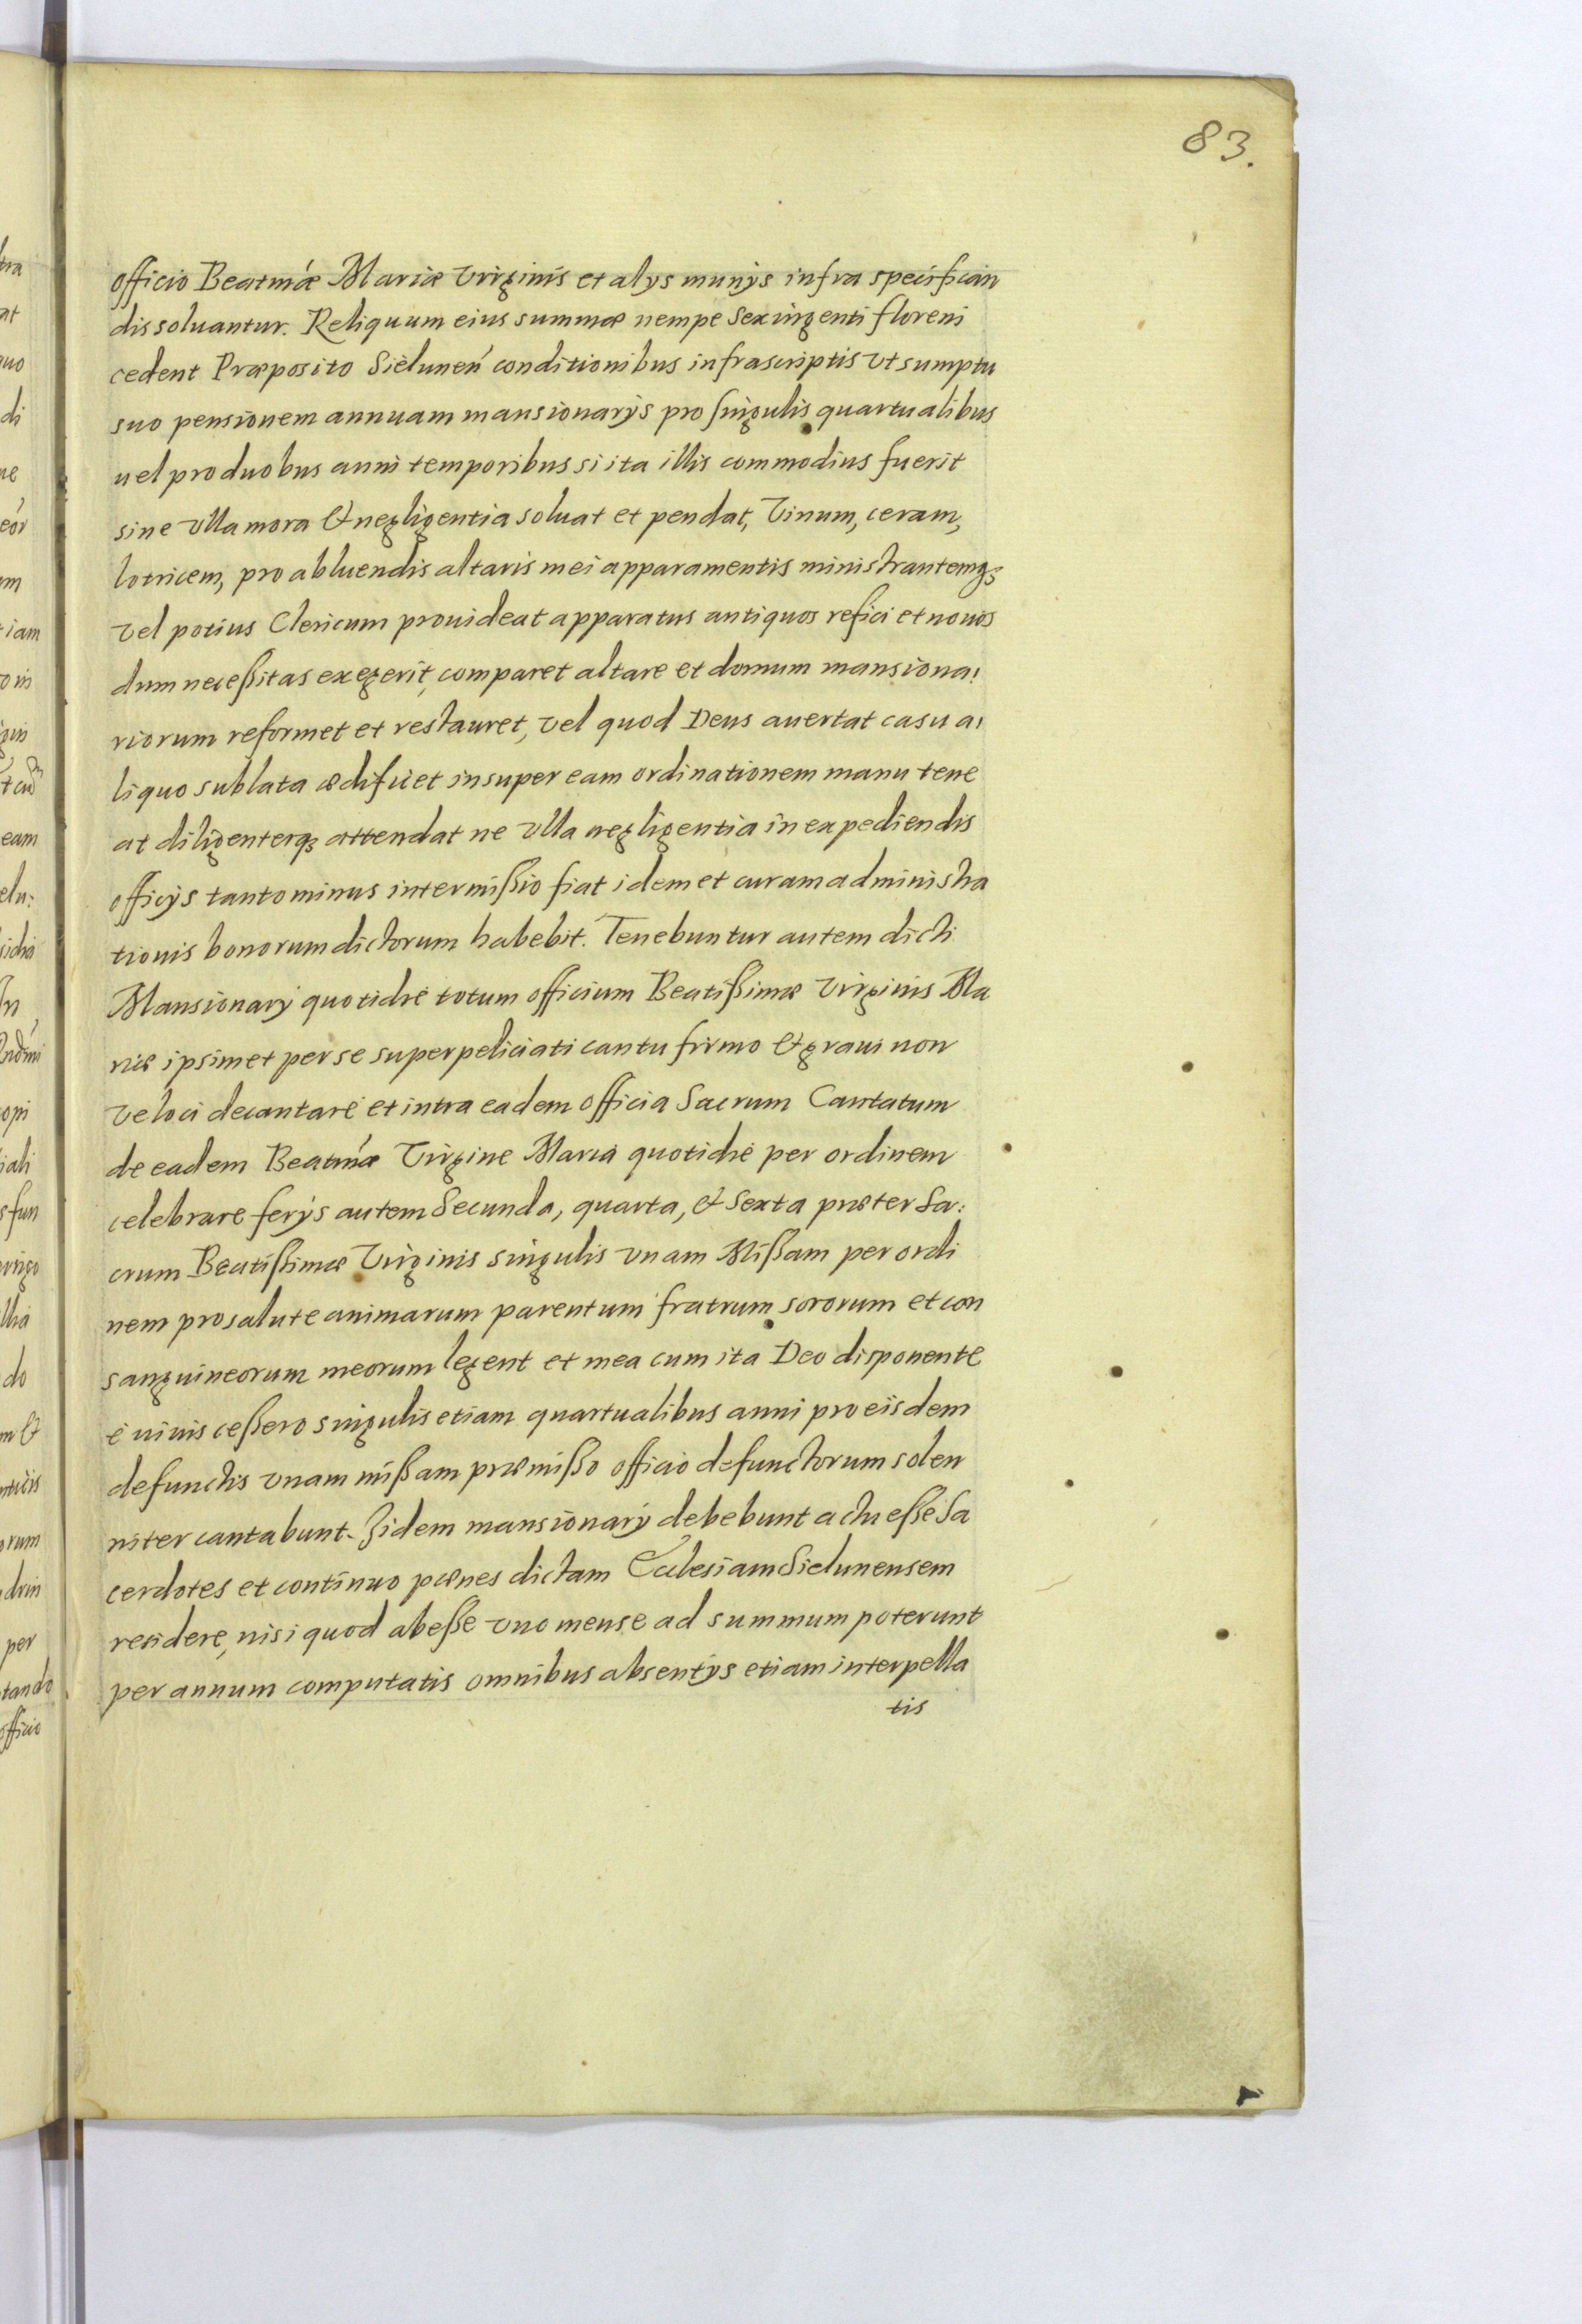 83.
officio Beatmæ Mariæ Virginis et alys munys infra specifican
dis soluantur. Reliquum eius summæ nempe Sexingenti floreni
cedent Præposito Sielunen conditionibus infrascriptis Vt sumptu
suo pensionem annuam mansionarys pro singulis quartualibus
uel pro duobus anni temporibus si ita illis commodius fuerit
sine Vlla mora & negligentia soluat et pendat, Vinum, ceram,
lotricem, pro abluendis altaris mei apparamentis ministrantemqʒ
vel potius Clericum prouideat apparatus antiquos refici et nouos
dum neceßitas exegerit, comparet altare et domum mansiona:
riorum reformet et restauret, vel quod Deus auertat casu a:
liquo sublata ædificet insuper eam ordinationem manu tene
at diligenterqʒ attendat ne Vlla negligentia in expediendis
officys tanto minus intermißio fiat idem et curam administra
tionis bonorum dictorum habebit. Tenebuntur autem dicti
Mansionary quotidie totum officium Beatißimæ Virginis Ma
riæ ipsimet per se superpeliciati cantu firmo & graui non
Veloci decantare et intra eadem officia Sacrum Cantatum
de eadem Beatmæ Virgine Maria quotidie per ordinem
celebrare ferys autem Secunda, quarta, & Sexta præter Sa:
crum Beatißimæ Virginis singulis vnam Mißam per ordi
nem pro salute animarum parentum fratrum sororum et con
sanguineorum meorum legent et mea cum ita Deo disponente
è uiuis ceßero singulis etiam quartualibus anni pro eisdem
defunctis vnam mißam præmißo officio defunctorum solen
niter cantabunt. Iidem mansionary debebunt actu eße Sa
cerdotes et continuo pænes dictam Ecclesiam Sielunensem
residere, nisi quod abeße vno mense ad summum poterunt
per annum computatis omnibus absentys etiam interpella
tis